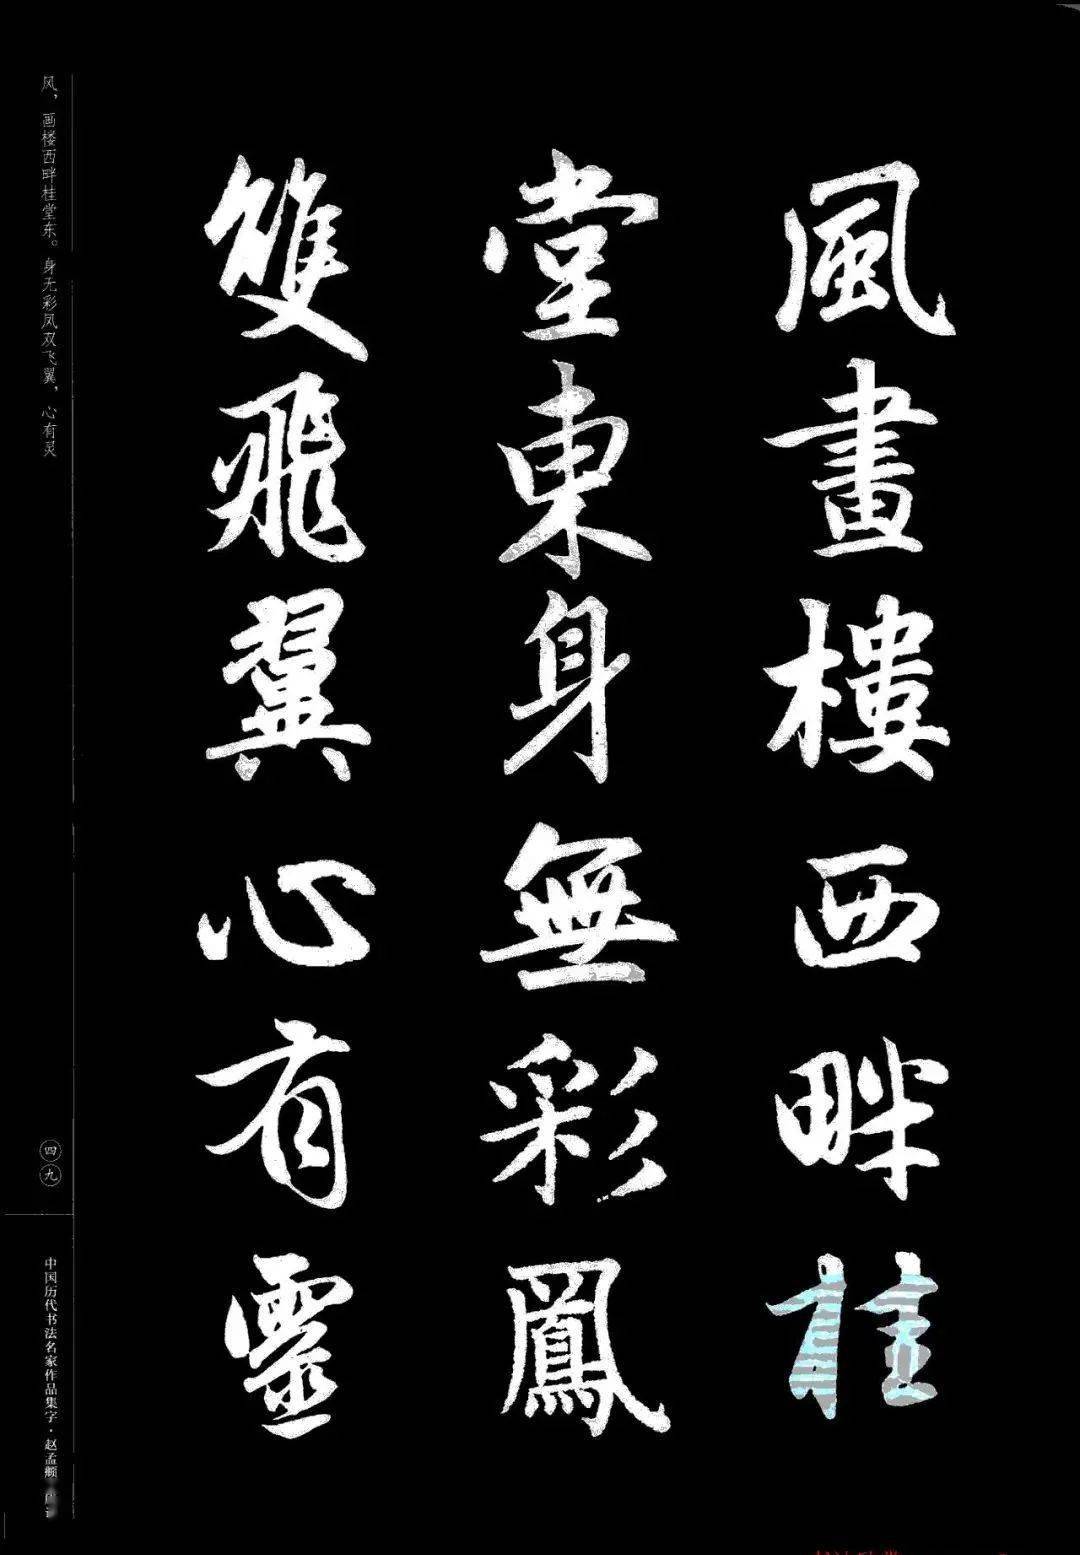 風畫樓西畔桂
堂東身無彩鳳
雙飛翼心有靈
风，画楼西畔桂堂东。身无彩凤双飞翼，心有灵
四九
中国历代书法名家作品集字·赵孟頫